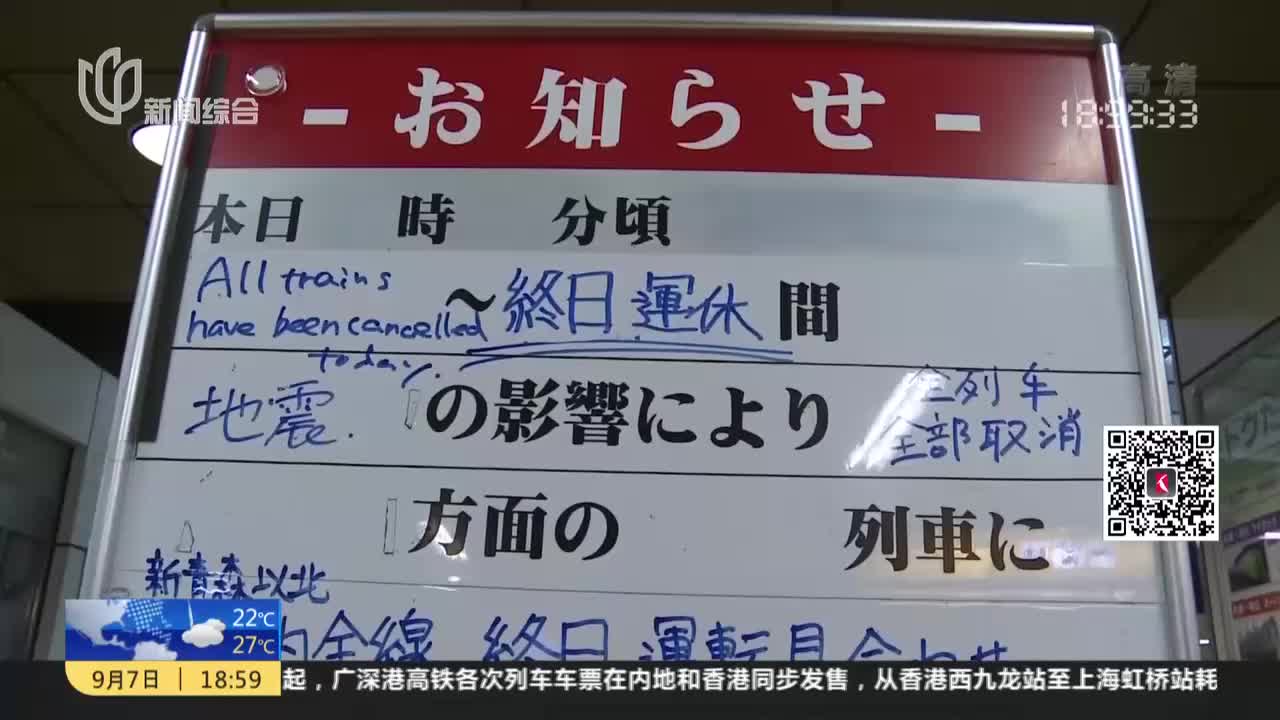 新闻综合
高清
18:59:33
- お知らせ -
本日 時 分頃
All trains
have been cancelled
today.
～終日運休間
地震
の影響により
全列车
全部取消
方面の 列車に
新青森以北
内全線 終日 運転見合わせ
22℃
27℃
9月7日 18:59
起，广深港高铁各次列车车票在内地和香港同步发售，从香港西九龙站至上海虹桥站耗